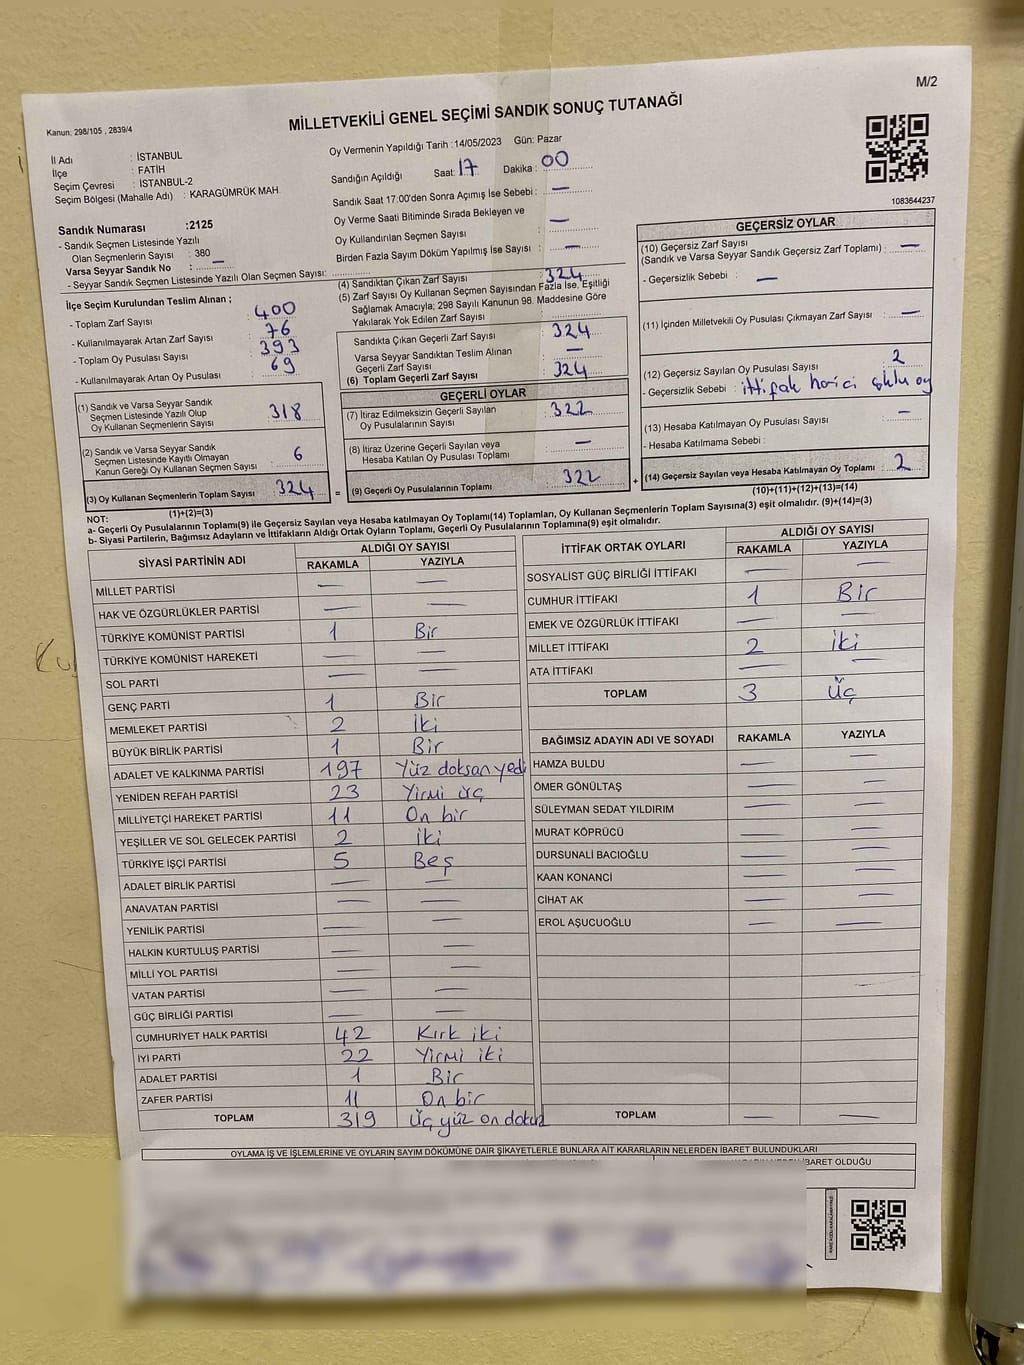 M/2
MİLLETVEKİLİ GENEL SEÇİMİ SANDIK SONUÇ TUTANAĞI
Kanun: 298/105 , 2839/4
İl Adı : İSTANBUL
İlçe : FATİH
Seçim Çevresi : İSTANBUL-2
Seçim Bölgesi (Mahalle Adı) : KARAGÜMRÜK MAH.
Oy Vermenin Yapıldığı Tarih :14/05/2023 Gün: Pazar
Sandığın Açıldığı Saat: 17 Dakika : 00
Sandık Saat 17:00'den Sonra Açımış İse Sebebi : —
Oy Verme Saati Bitiminde Sırada Bekleyen ve
Oy Kullandırılan Seçmen Sayısı : —
Birden Fazla Sayım Döküm Yapılmış İse Sayısı : —
1083644237
Sandık Numarası :2125
- Sandık Seçmen Listesinde Yazılı
Olan Seçmenlerin Sayısı : 380
Varsa Seyyar Sandık No : —
- Seyyar Sandık Seçmen Listesinde Yazılı Olan Seçmen Sayısı:
İlçe Seçim Kurulundan Teslim Alınan ;
- Toplam Zarf Sayısı : 400
- Kullanılmayarak Artan Zarf Sayısı : 76
- Toplam Oy Pusulası Sayısı : 393
- Kullanılmayarak Artan Oy Pusulası : 69
(1) Sandık ve Varsa Seyyar Sandık
Seçmen Listesinde Yazılı Olup
Oy Kullanan Seçmenlerin Sayısı : 318
(2) Sandık ve Varsa Seyyar Sandık
Seçmen Listesinde Kayıtlı Olmayan
Kanun Gereği Oy Kullanan Seçmen Sayısı : 6
(3) Oy Kullanan Seçmenlerin Toplam Sayısı : 324
(1)+(2)=(3)
(4) Sandıktan Çıkan Zarf Sayısı : 324
(5) Zarf Sayısı Oy Kullanan Seçmen Sayısından Fazla İse, Eşitliği
Sağlamak Amacıyla; 298 Sayılı Kanunun 98. Maddesine Göre
Yakılarak Yok Edilen Zarf Sayısı :
Sandıkta Çıkan Geçerli Zarf Sayısı : 324
Varsa Seyyar Sandıktan Teslim Alınan
Geçerli Zarf Sayısı : —
(6) Toplam Geçerli Zarf Sayısı : 324
GEÇERLİ OYLAR
(7) İtiraz Edilmeksizin Geçerli Sayılan
Oy Pusulalarının Sayısı : 322
(8) İtiraz Üzerine Geçerli Sayılan veya
Hesaba Katılan Oy Pusulası Toplamı : —
= (9) Geçerli Oy Pusulalarının Toplamı : 322
GEÇERSİZ OYLAR
(10) Geçersiz Zarf Sayısı
(Sandık ve Varsa Seyyar Sandık Geçersiz Zarf Toplamı) : —
- Geçersizlik Sebebi : —
(11) İçinden Milletvekili Oy Pusulası Çıkmayan Zarf Sayısı : —
(12) Geçersiz Sayılan Oy Pusulası Sayısı : 2
- Geçersizlik Sebebi : ittifak harici çoklu oy
(13) Hesaba Katılmayan Oy Pusulası Sayısı : —
- Hesaba Katılmama Sebebi :
+ (14) Geçersiz Sayılan veya Hesaba Katılmayan Oy Toplamı : 2
(10)+(11)+(12)+(13)=(14)
NOT:
a- Geçerli Oy Pusulalarının Toplamı(9) ile Geçersiz Sayılan veya Hesaba katılmayan Oy Toplamı(14) Toplamları, Oy Kullanan Seçmenlerin Toplam Sayısına(3) eşit olmalıdır. (9)+(14)=(3)
b- Siyasi Partilerin, Bağımsız Adayların ve İttifakların Aldığı Ortak Oyların Toplamı, Geçerli Oy Pusulalarının Toplamına(9) eşit olmalıdır.
SİYASİ PARTİNİN ADI ALDIĞI OY SAYISI
RAKAMLA YAZIYLA
MİLLET PARTİSİ — —
HAK VE ÖZGÜRLÜKLER PARTİSİ — —
TÜRKİYE KOMÜNİST PARTİSİ 1 Bir
TÜRKİYE KOMÜNİST HAREKETİ — —
SOL PARTİ — —
GENÇ PARTİ 1 Bir
MEMLEKET PARTİSİ 2 İki
BÜYÜK BİRLİK PARTİSİ 1 Bir
ADALET VE KALKINMA PARTİSİ 197 Yüz doksan yedi
YENİDEN REFAH PARTİSİ 23 Yirmi üç
MİLLİYETÇİ HAREKET PARTİSİ 11 On bir
YEŞİLLER VE SOL GELECEK PARTİSİ 2 İki
TÜRKİYE İŞÇİ PARTİSİ 5 Beş
ADALET BİRLİK PARTİSİ — —
ANAVATAN PARTİSİ — —
YENİLİK PARTİSİ —
HALKIN KURTULUŞ PARTİSİ — —
MİLLİ YOL PARTİSİ — —
VATAN PARTİSİ — —
GÜÇ BİRLİĞİ PARTİSİ — —
CUMHURİYET HALK PARTİSİ 42 Kırk iki
İYİ PARTİ 22 Yirmi iki
ADALET PARTİSİ 1 Bir
ZAFER PARTİSİ 11 On bir
TOPLAM 319 Üç yüz on dokuz
İTTİFAK ORTAK OYLARI ALDIĞI OY SAYISI
RAKAMLA YAZIYLA
SOSYALİST GÜÇ BİRLİĞİ İTTİFAKI — —
CUMHUR İTTİFAKI 1 Bir
EMEK VE ÖZGÜRLÜK İTTİFAKI — —
MİLLET İTTİFAKI 2 İki
ATA İTTİFAKI — —
TOPLAM 3 Üç
BAĞIMSIZ ADAYIN ADI VE SOYADI RAKAMLA YAZIYLA
HAMZA BULDU — —
ÖMER GÖNÜLTAŞ — —
SÜLEYMAN SEDAT YILDIRIM — —
MURAT KÖPRÜCÜ — —
DURSUNALİ BACIOĞLU — —
KAAN KONANCİ — —
CİHAT AK — —
EROL AŞUCUOĞLU — —
TOPLAM — —
OYLAMA İŞ VE İŞLEMLERİNE VE OYLARIN SAYIM DÖKÜMÜNE DAİR ŞİKAYETLERLE BUNLARA AİT KARARLARIN NELERDEN İBARET BULUNDUKLARI
İBARET OLDUĞU